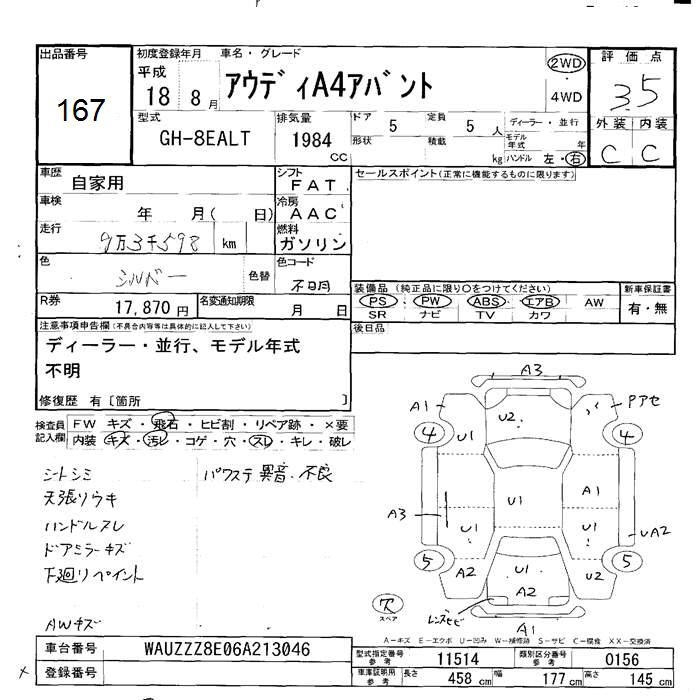 出品番号
167
初度登録年月
平成
18 8 月
車名・グレード
アウディA4アバント
2WD
4WD
評価点
3.5
外装 内装
C C
型式
GH-8EALT
排気量
1984
CC
ドア 5 定員 5 人
形状 積載 kg
ディーラー・並行
モデル年式 年
ハンドル 左・右
車歴
自家用
シフト
FAT
セールスポイント(正常に機能するものに限ります)
車検
年 月( 日)
冷房
AAC
走行
9万3千598 km
燃料
ガソリン
色
シルバー
色替
色コード
不明
装備品 (純正品に限り○をつけてください)
PS・PW・ABS・エアB・AW
SR ナビ TV カワ
新車保証書
有・無
R券
17,870 円
名変通知期限
月 日
後日品
注意事項申告欄(不具合内容等は具体的に記入して下さい)
ディーラー・並行、モデル年式
不明
修復歴 有〔箇所 〕
検査員
記入欄
FW キズ・飛石・ヒビ割・リペア跡・×要
内装 キズ・汚レ・コゲ・穴・スレ・キレ・破レ
シートシミ
天張りウキ
ハンドルスレ
ドアミラーキズ
下廻りペイント
AWキズ
パワステ異音・不良
A3
A1
U2
Pアセ
4
U1
4
A3
U1
A1
U1
U1
UA2
5
A2
U1
A2
U2
5
スペア
レンズヒビ
A1
A-キズ E-エクボ U-凹み W-補修跡 S-サビ C-腐食 XX-交換済
車台番号
WAUZZZ8E06A213046
登録番号
型式指定番号
参考
11514
類別区分番号
参考
0156
車庫証明用
参考
長さ 458 cm 幅 177 cm 高さ 145 cm